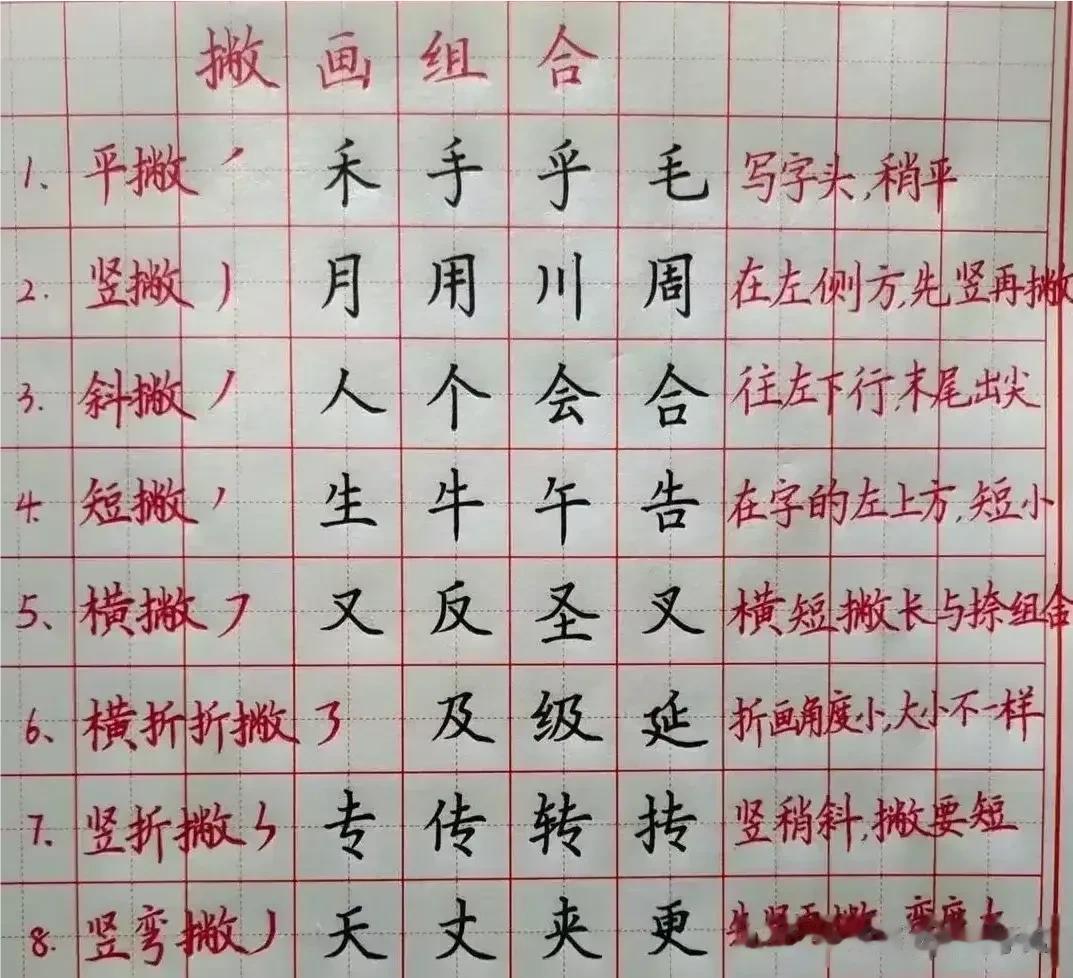 撇画组合
1、平撇 ㇒ 禾 手 乎 毛 写字头,稍平
2、竖撇 丿 月 用 川 周 在左侧方,先竖再撇
3、斜撇 丿 人 个 会 合 往左下行,末尾出尖
4、短撇 ㇒ 生 牛 午 告 在字的左上方,短小
5、横撇 ㇇ 又 反 圣 叉 横短撇长与捺组合
6、横折折撇 ㇋ 及 级 延 折画角度小,大小不一样
7、竖折撇 ㇉ 专 传 转 抟 竖稍斜,撇要短
8、竖弯撇 丿 天 丈 夹 更 先竖再撇,弯度